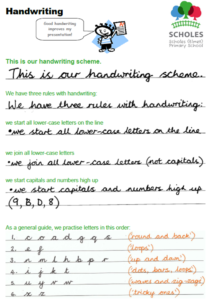 Handwriting
Good handwriting
improves my
presentation!
SCHOLES
(Elmet)
Primary School
This is our handwriting scheme.
This is our handwriting scheme.
We have three rules with handwriting:
We have three rules with handwriting:
we start all lower case letters on the line
•we start all lower-case letters on the line
we join all lower-case letters
•we join all lower-case letters (not capitals).
we start capitals and numbers high up
•we start capitals and numbers high up
(9, B, D, 8)
As a general guide, we practise letters in this order:
1. c o a d g q s (round and back')
2. e f ('loops')
3. n m l h b p r (up and down')
4. i j k t (dots, bars, loops')
5. u y v w (waves and zig-zags')
6. x z ('tricky ones')